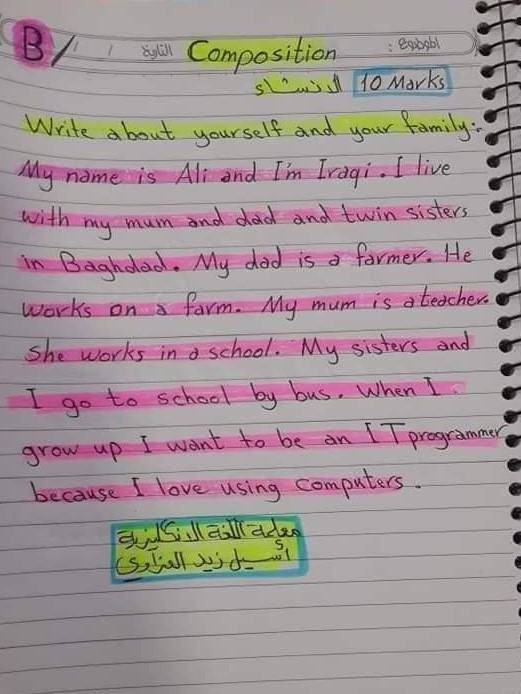 B/ التاريخ / / Composition الموضوع :
الانشاء 10 Marks
Write about yourself and your family:-
My name is Ali and I'm Iraqi. I live
with my mum and dad and twin sisters
in Baghdad. My dad is a farmer. He
works on a farm. My mum is a teacher.
She works in a school. My sisters and
I go to school by bus. When I
grow up I want to be an IT programmer
because I love using computers.
معلمة اللغة الانكليزية
أسيل زيد العزاوي